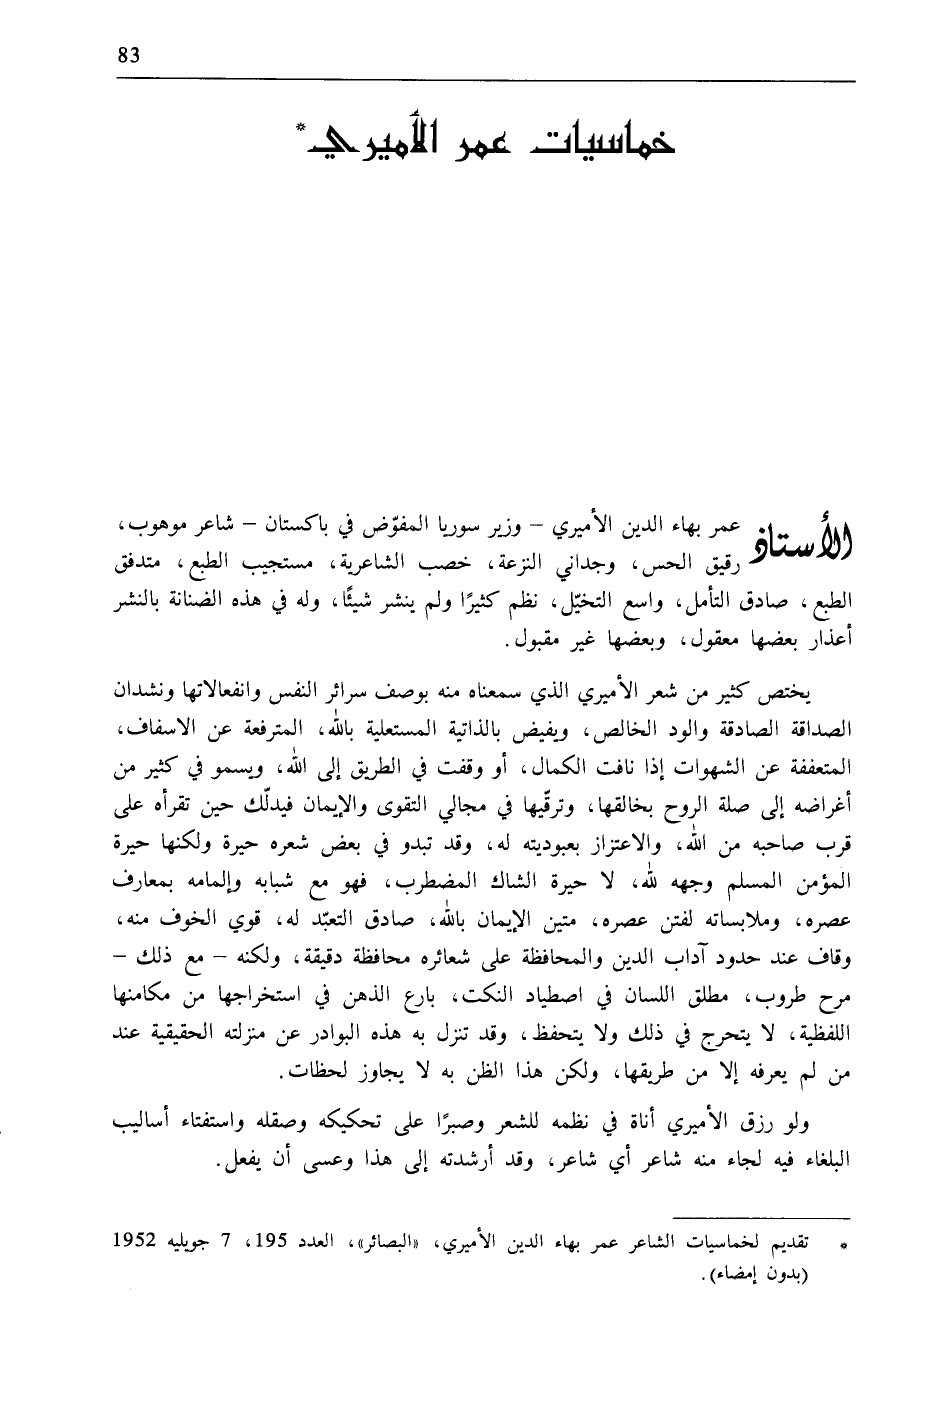 83
خماسيات عمر الأميري*
الأستاذ عمر بهاء الدين الأميري – وزير سوريا المفوّض في باكستان – شاعر موهوب،
رقيق الحس، وجداني النزعة، خصب الشاعرية، مستجيب الطبع، متدفق
الطبع، صادق التأمل، واسع التخيّل، نظم كثيرًا ولم ينشر شيئًا، وله في هذه الضنانة بالنشر
أعذار بعضها معقول، وبعضها غير مقبول.
يختص كثير من شعر الأميري الذي سمعناه منه بوصف سرائر النفس وانفعالاتها ونشدان
الصداقة الصادقة والود الخالص، ويفيض بالذاتية المستعلية بالله، المترفعة عن الاسفاف،
المتعففة عن الشهوات إذا نافت الكمال، أو وقفت في الطريق إلى الله، ويسمو في كثير من
أغراضه إلى صلة الروح بخالقها، وترقّيها في مجالي التقوى والإيمان فيدلّك حين تقرأه على
قرب صاحبه من الله، والاعتزاز بعبوديته له، وقد تبدو في بعض شعره حيرة ولكنها حيرة
المؤمن المسلم وجهه لله، لا حيرة الشاك المضطرب، فهو مع شبابه وإلمامه بمعارف
عصره، وملابساته لفتن عصره، متين الإيمان بالله، صادق التعبّد له، قوي الخوف منه،
وقاف عند حدود آداب الدين والمحافظة على شعائره محافظة دقيقة، ولكنه – مع ذلك –
مرح طروب، مطلق اللسان في اصطياد النكت، بارع الذهن في استخراجها من مكامنها
اللفظية، لا يتحرج في ذلك ولا يتحفظ، وقد تنزل به هذه البوادر عن منزلته الحقيقية عند
من لم يعرفه إلا من طريقها، ولكن هذا الظن به لا يجاوز لحظات.
ولو رزق الأميري أناة في نظمه للشعر وصبرًا على تحكيكه وصقله واستفتاء أساليب
البلغاء فيه لجاء منه شاعر أي شاعر، وقد أرشدته إلى هذا وعسى أن يفعل.
* تقديم لخماسيات الشاعر عمر بهاء الدين الأميري، «البصائر»، العدد 195، 7 جويليه 1952
(بدون إمضاء).